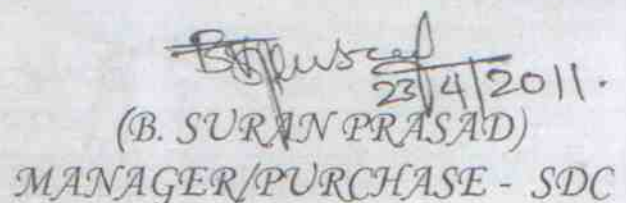 23/4/2011.
(B. SURAN PRASAD)
MANAGER/PURCHASE - SDC